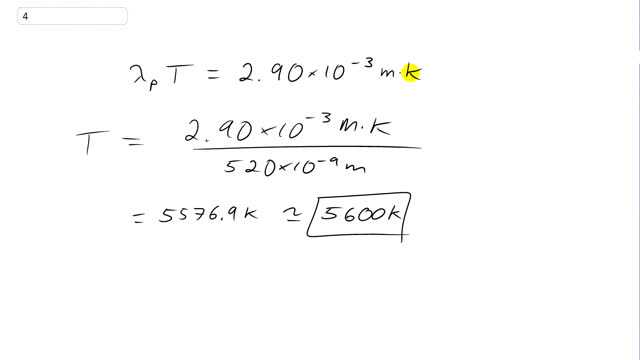 4
λₚ T = 2.90×10⁻³ m·k
T = 2.90×10⁻³ m·K / 520×10⁻⁹ m
= 5576.9k ≃ 5600k